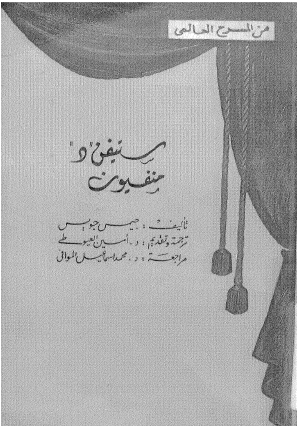 من المسرح العالمى
ستيفن "د"
منفيون
تأليف : جيمس جويس
ترجمة وتقديم : د . أمين العيوطى
مراجعة : د . محمد إسماعيل الموافى